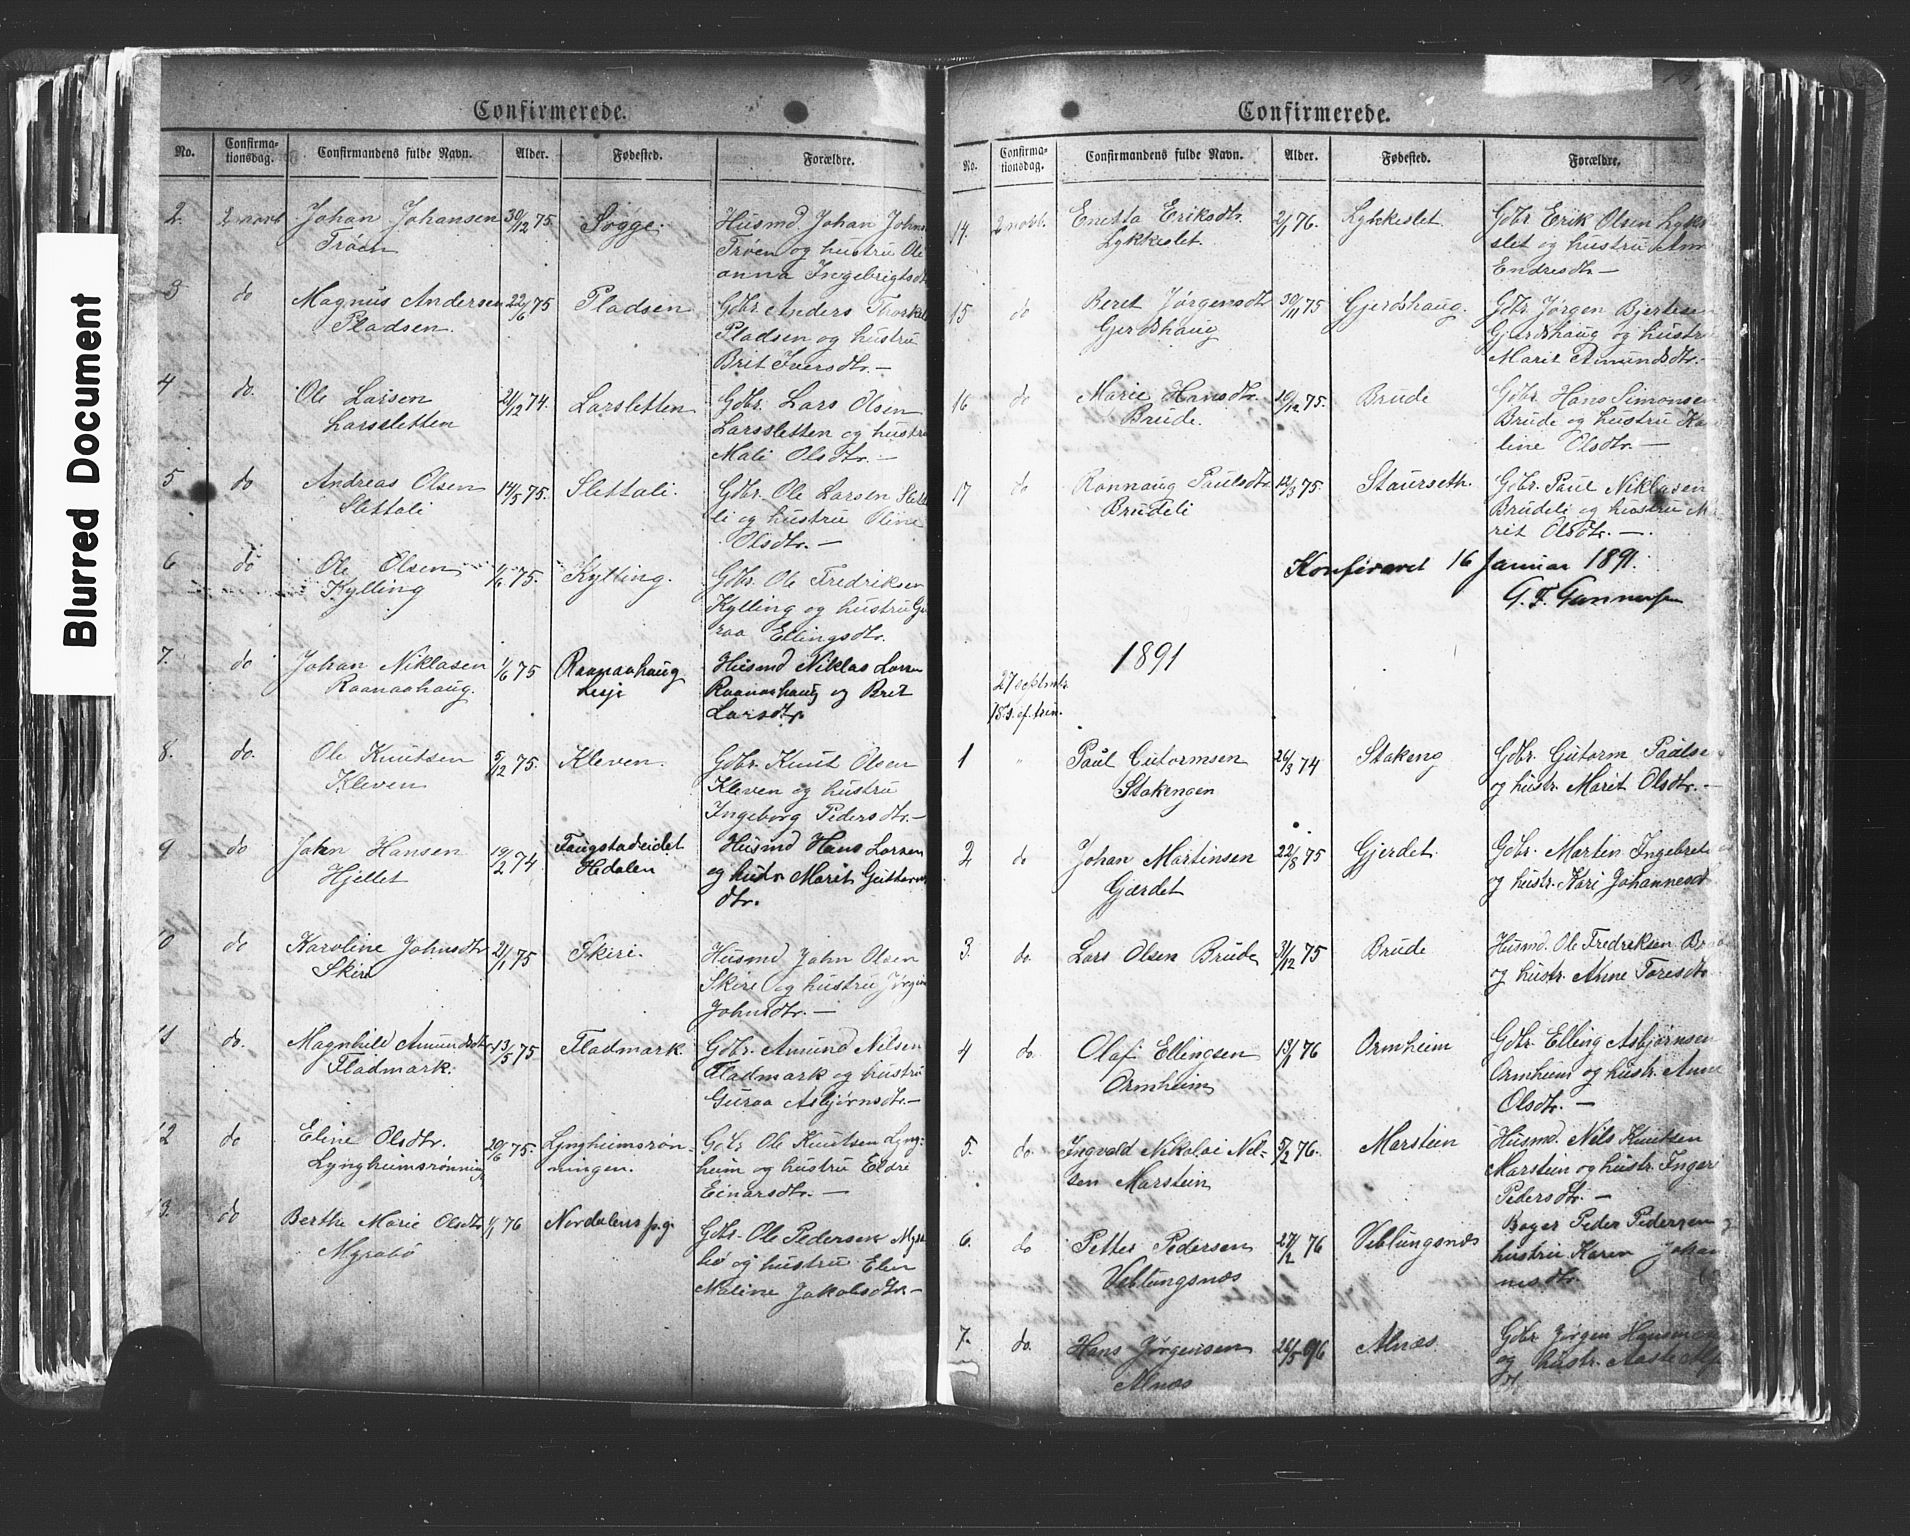 Blurred Document
Confirmerede.
No. Confirma-
tionsdag. Confirmandens fulde Navn. Alder. Fødested. Forældre.
2. 2 novb Johan Johansen 30/12 75 Sogge. Husmd Johan Johns
Trøen Trøen og hustru Ole
anna Ingebrigtsdt
3 do Magnus Andersen 22/6 75 Pladsen Gdbr. Anders Thorkel
Pladsen. Pladsen og hustru
Brit Iversdtr. —
4 do. Ole Larsen 21/12 74. Larsletten Gdbr. Lars Olsen
Larssletten Larssletten og hustru
Mali Olsdtr. —
5 do Andreas Olsen 14/5 75. Slettali. Gdbr. Ole Larsen Sletta
Slettali li og hustru Oline
Olsdtr. —
6 do Ole Olsen 1/6 75. Kylling. Gdbr. Ole Fredriksen
Kylling Kylling og hustru Gu
raa Ellingsdtr.
7. do Johan Niklasen 1/6 75 Raanaahaug Husmd Niklas Larsen
Raanaahaug. Lesje Raanaahaug og Brit
Larsdtr.
8. do. Ole Knutsen 5/12 75. Kleven. Gdbr. Knut Olsen
Kleven Kleven og hustru
Ingeborg Pedersdtr. —
9 do John Hansen 19/2 74 Faugstadeidet Husmd Hans Larsen
Hjellet Hedalen og hustr Marit Guttorms
dtr.
10 do Karoline Johnsdtr 21/1 75 Skiri. Husmd John Olsen
Skire Skire og hustru Jørgine
Johnsdtr. —
11 do. Magnhild Amundsdtr 13/5 75 Fladmark. Gdbr. Amund Nilsen
Fladmark. Fladmark og hustru
Guraa Asbjørnsdtr. —
12 do Eline Olsdtr. 20/6 75. Lyngheimsrøn- Gdbr Ole Knutsen Lyng-
Lyngheimsrønning ningen. heim og hustru Eldri
Einarsdtr. —
13. do Berthe Marie Olsdtr 1/1 76 Nordalens p.g. Gdbr. Ole Pedersen Myra
Myrabø bø og hustru Elen
Maline Jakobsdtr. —
Confirmerede.
No. Confirma-
tionsdag. Confirmandens fulde Navn. Alder. Fødested. Forældre.
14. 2 novb. Enetta Eriksdtr. 2/1 76. Lykkeslet Gdbr Erik Olsen Lykke
Lykkeslet. slet og hustru Ann
Endresdtr —
15 do Beret Jørgensdtr 30/11 75 Gjerdshaug. Gdbr. Jørgen Bjertesen
Gjerdshaug Gjerdshaug og hustru
Marit Amundsdtr. —
16 do Marie Hansdtr. 10/12 75. Brude Gdbr. Hans Simonsen
Brude. Brude og hustru Karo
line Olsdtr. —
17 do Rønnaug Paulsdtr 12/3 75. Staurseth. Gdbr. Paul Niklasen
Brudeli Brudeli og hustru Ma
rit Olsdtr. —.
Konfereret 16 Januar 1891.
G. F. Gunnersen
1891
27 septmbr.
18 s. ef. trin.
1 " Paul Gutormsen 26/3 74 Stokeng Gdbr. Gutorm Paalse
Stokengen og hustr. Marit Olsdtr. —
2 do Johan Martinsen 22/8 75 Gjerdet. Gdbr. Martin Ingebrets
Gjærdet og hustr. Kari Johannesd
3. do. Lars Olsen Brude 31/12 75 Brude Husmd. Ole Fredriksen Brude
og hustr. Anne Toresdtr
4 do. Olaf Ellingsen 13/1 76 Ormheim Gdbr. Elling Asbjørnsen
Ormheim Ormheim og hustr. Anne
Olsdtr. —
5. do. Ingvald Nikolai Nil- 5/2 76. Marstein Husmd. Nils Knutsen
sen Marstein Marstein og hustr. Inger
Pedersdtr. —
6. do Petter Pedersen 27/2 76 Veblungsnæs Bager Peder Pedersen og
Veblungsnæs hustru Karen Johan
nesdtr.
7. do. Hans Jørgensen 26/5 76 Alnæs. Gdbr Jørgen Hansen
Alnæs og hustr. Aaste